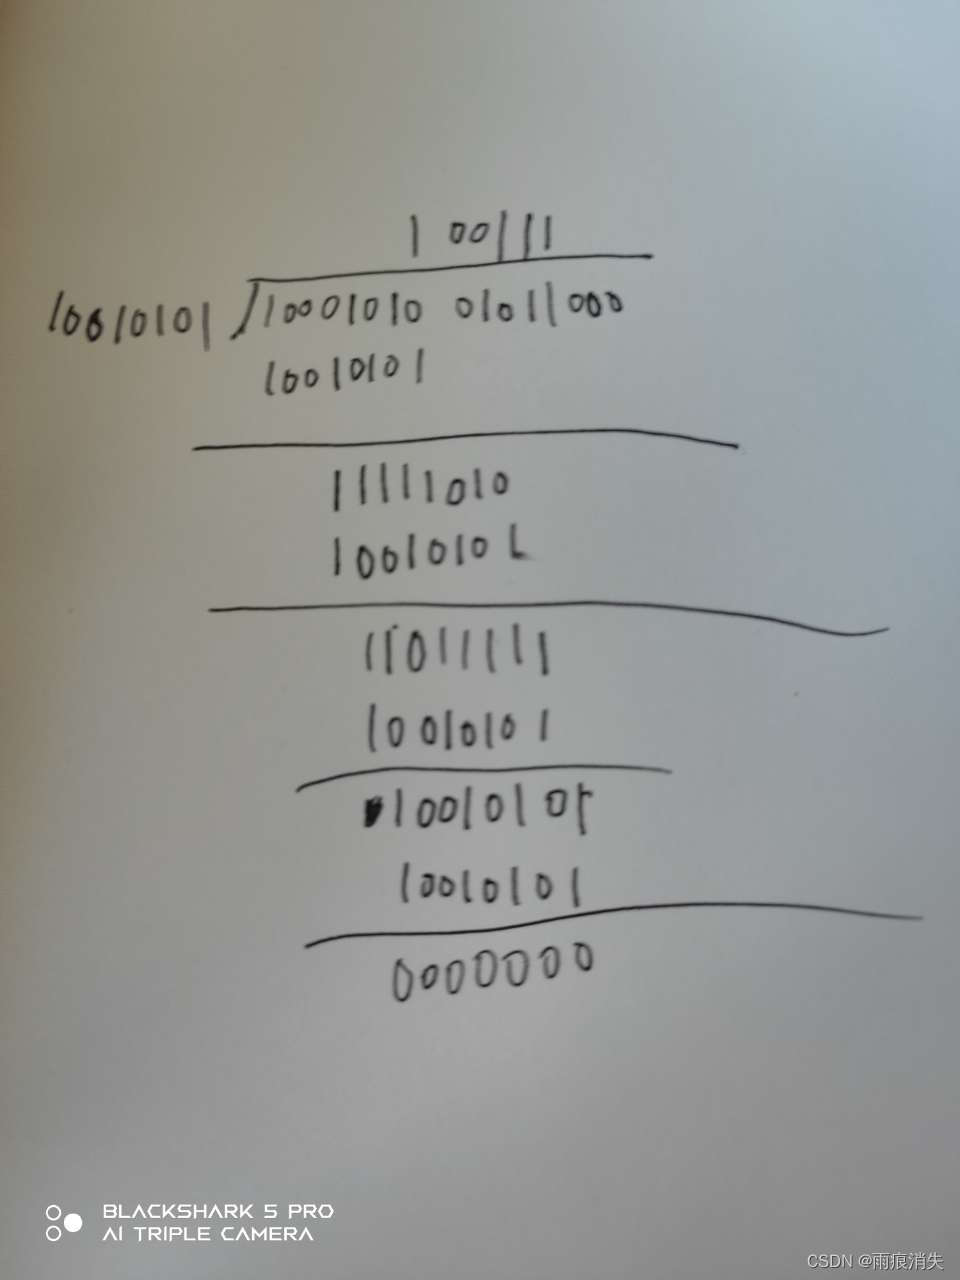 1 00111
10010101 10001010 01011000
10010101
11111010
10010101
11011111
10010101
10010101
10010101
0000000
BLACKSHARK 5 PRO
AI TRIPLE CAMERA
CSDN @雨痕消失